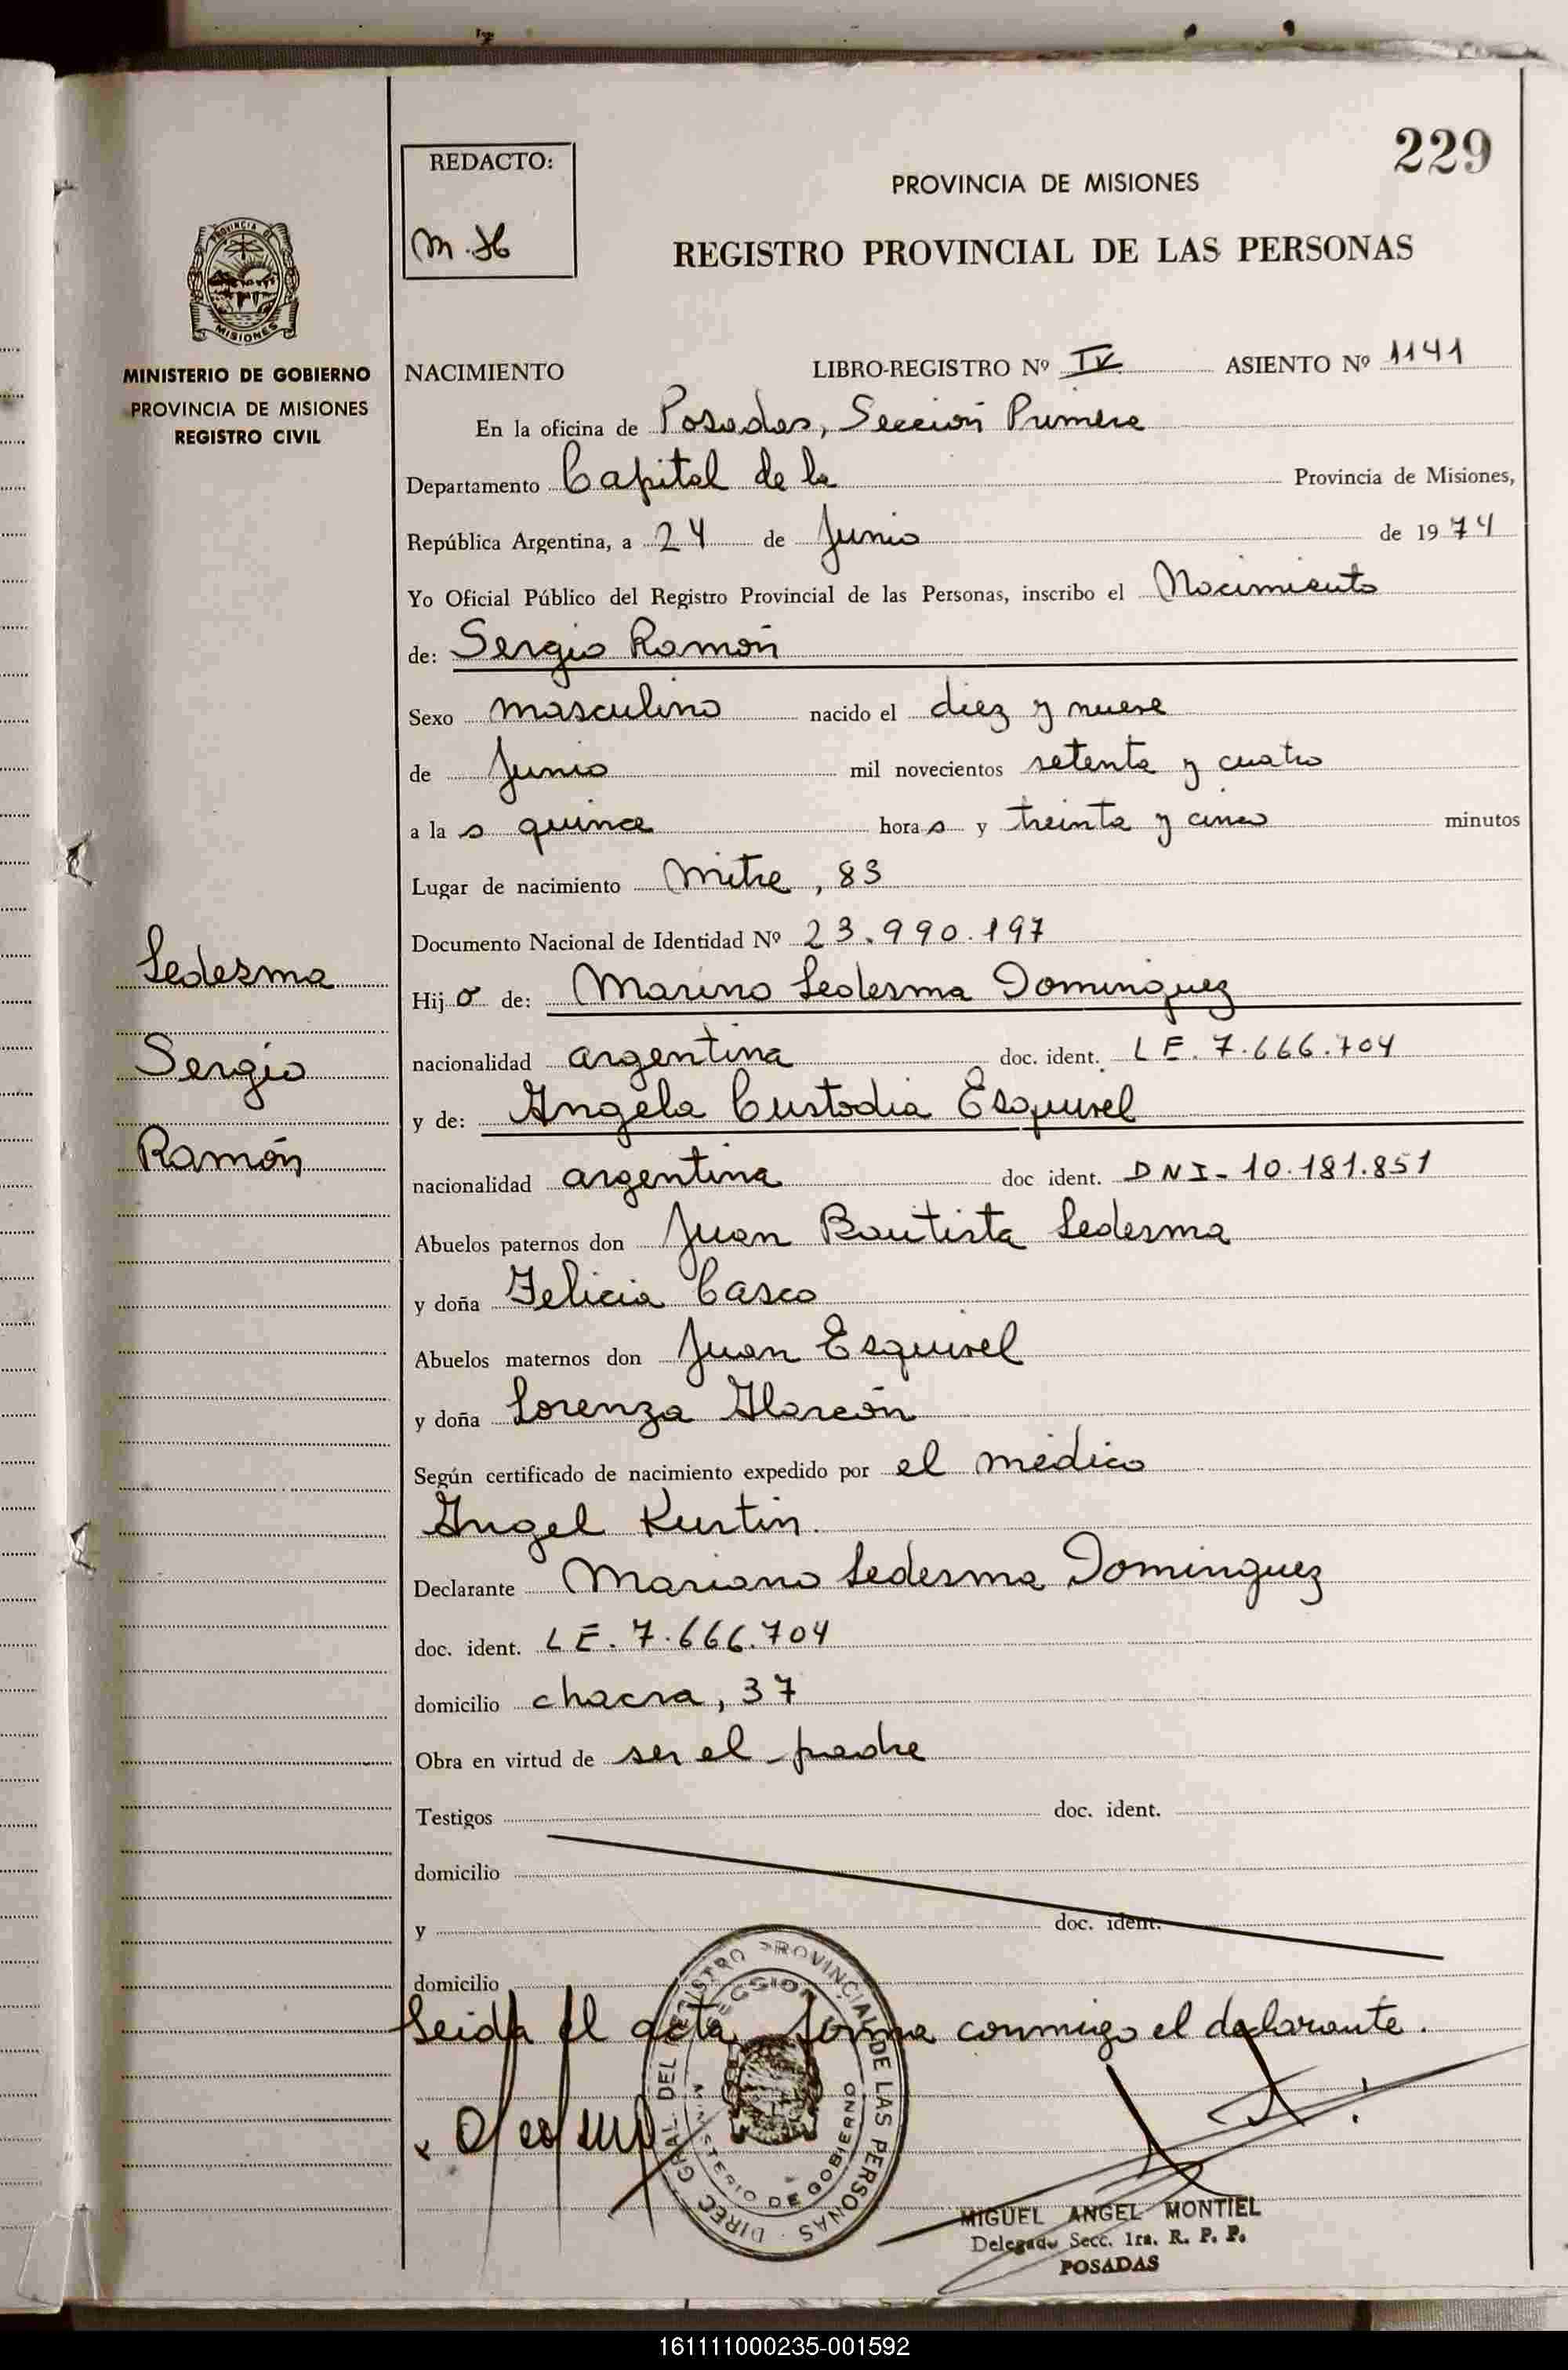 229
REDACTO:
M.H
PROVINCIA DE MISIONES
REGISTRO PROVINCIAL DE LAS PERSONAS
PROVINCIA DE
MISIONES
MINISTERIO DE GOBIERNO
PROVINCIA DE MISIONES
REGISTRO CIVIL
NACIMIENTO LIBRO-REGISTRO Nº IV ASIENTO Nº 1141
En la oficina de Posadas, Sección Primera
Departamento Capital de la Provincia de Misiones,
República Argentina, a 24 de Junio de 1974
Yo Oficial Público del Registro Provincial de las Personas, inscribo el Nacimiento
de: Sergio Ramón
Sexo masculino nacido el diez y nueve
de Junio mil novecientos setenta y cuatro
a la s quince hora s y treinta y cinco minutos
Lugar de nacimiento Mitre, 83
Documento Nacional de Identidad Nº 23.990.197
Ledesma
Sergio
Ramón
Hij o de: Marino Ledesma Dominguez
nacionalidad argentina doc. ident. LE. 7.666.704
y de: Angela Custodia Esquivel
nacionalidad argentina doc ident. DNI- 10.181.851
Abuelos paternos don Juan Bautista Ledesma
y doña Felicia Casco
Abuelos maternos don Juan Esquivel
y doña Lorenza Alarcón
Según certificado de nacimiento expedido por el médico
Angel Kurtin.
Declarante Mariano Ledesma Dominguez
doc. ident. LE. 7.666.704
domicilio chacra, 37
Obra en virtud de ser el padre
Testigos doc. ident.
domicilio
y doc. ident.
domicilio
Leida el acta firma conmigo el declarante.
DIREC. GRAL. DEL REGISTRO PROVINCIAL DE LAS PERSONAS
MINISTERIO DE GOBIERNO
MIGUEL ANGEL MONTIEL
Delegado Secc. 1ra. R. P. P.
POSADAS
161111000235-001592